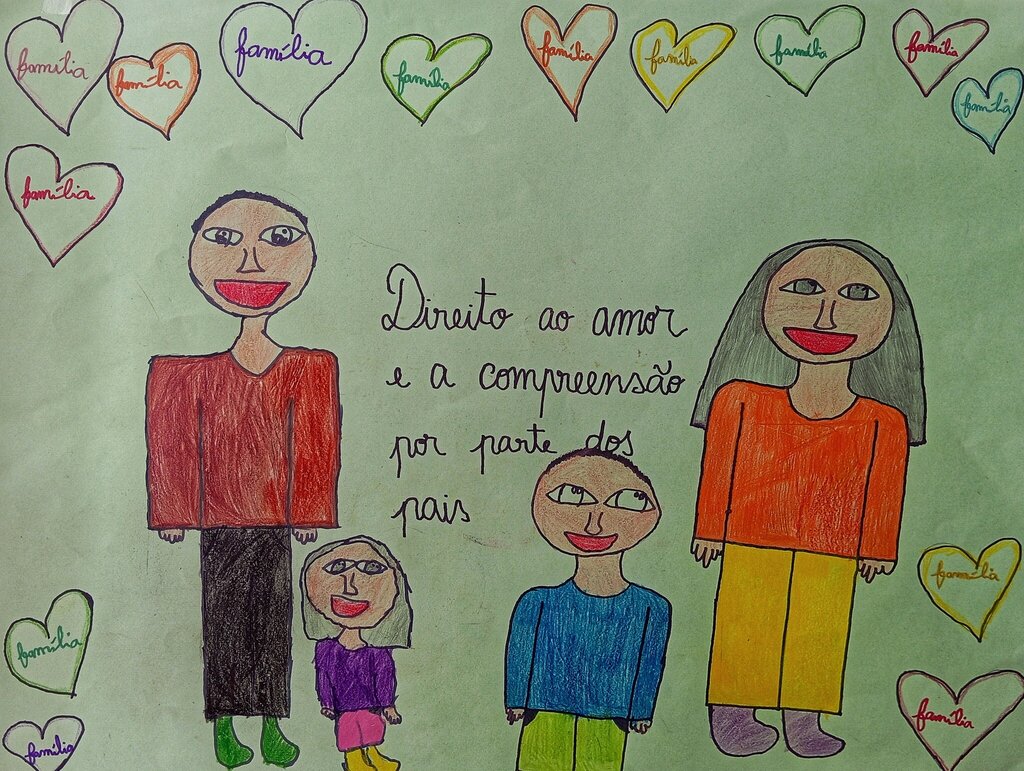 família
família
família
família
família
família
família
família
família
família
Direito ao amor
e a compreensão
por parte dos
pais
família
família
família
família